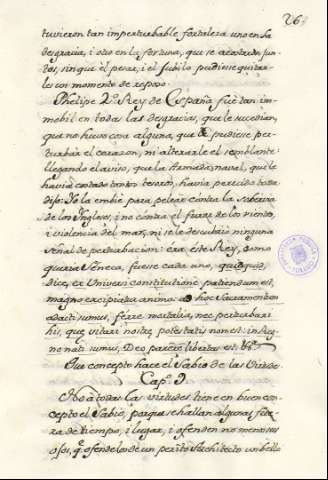 26
tuvieron tan imperturbable fortaleza uno en la
desgracia, i otro en la fortuna, que se acostaron jun-
tos, sin que el pesar, i el jubilo pudiese quitar-
les un momento de reposo.
Phelipe 2.º Rey de España fue tan im-
mobil en todas las desgracias, que le sucedian,
que no huvo cosa alguna, que le pudiese per-
turbar el corazon, ni alterarle el semblante
llegando el aviso, que la Armada naval, que le
havia costado tantos tesoros, havia perecido toda
dijo: Yo la embie para pelear contra la sobervia
de los Ingleses, i no contra el furor de los vientos,
i violencia del mar, ni se le descubrio ninguna
señal de perturbacion: era este Rey, como
queria Seneca, fuese cada uno, quidquid,
dice, ex Universi constitutione patiendum est,
magno excipiatur animo ad hoc Sacramentum
adacti sumus, ferre mortalia, nec perturbari
his, que vitari nostræ potestatis non est: in Reg-
no nati sumus, Deo parere libertas est. &.
Que concepto hace el Sabio de las Virtudes
Cap.º 9
No à todas las virtudes tiene en buen con-
cepto el Sabio, porque se hallan algunas fue-
ra de tiempo, i lugar, i ofenden no menos sus
ojos, q.e ofende los de un perito Architecto un bello